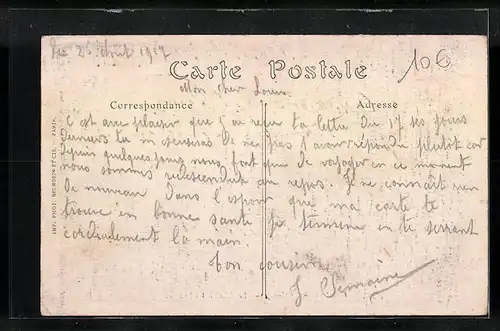 Le 26 Août 1917
10€
Carte Postale
Mon cher Louis
Correspondance
Adresse
C est avec plaisir que j ai reçu ta lettre du 17 ses jours
derniers tu m excuseras de ne pas t avoir répondu plutôt car
depuis quelques jours nous font que de voyager en ce moment
nous sommes redescendu au repos. Je ne connait rien
de nouveau Dans l espoir que ma carte te
trouve en bonne santé je termine en te serrant
cordialement la main.
ton cousin
J.
IMP. PHOT. NEURDEIN ET CIE. PARIS.